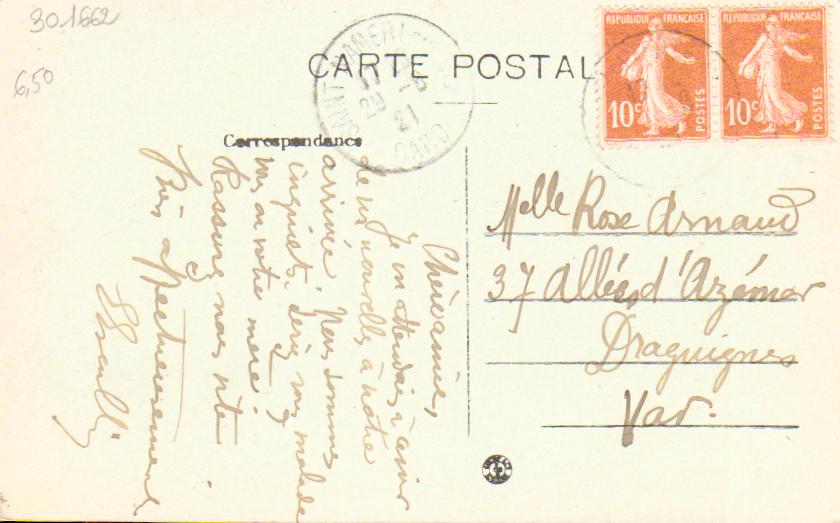 301662
6,50
CARTE POSTALE
RÉPUBLIQUE FRANÇAISE
10c
POSTES
RÉPUBLIQUE FRANÇAISE
10c
POSTES
29 -8
21
GARD
Correspondance
Chère amie,
Je m'attendais à avoir
de vos nouvelles à notre
arrivée. Nous sommes
inquiets. Seriez vous malade
vous ou votre mère?
Rassurez nous vite
Bien affectueusement
Melle Rose Arnaud
37 Allées d'Azémar
Draguignan
Var.